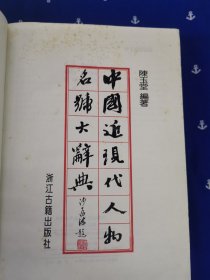 陳玉堂 編著
中國近現代人物
名號大辭典
沙孟海題
浙江古籍出版社